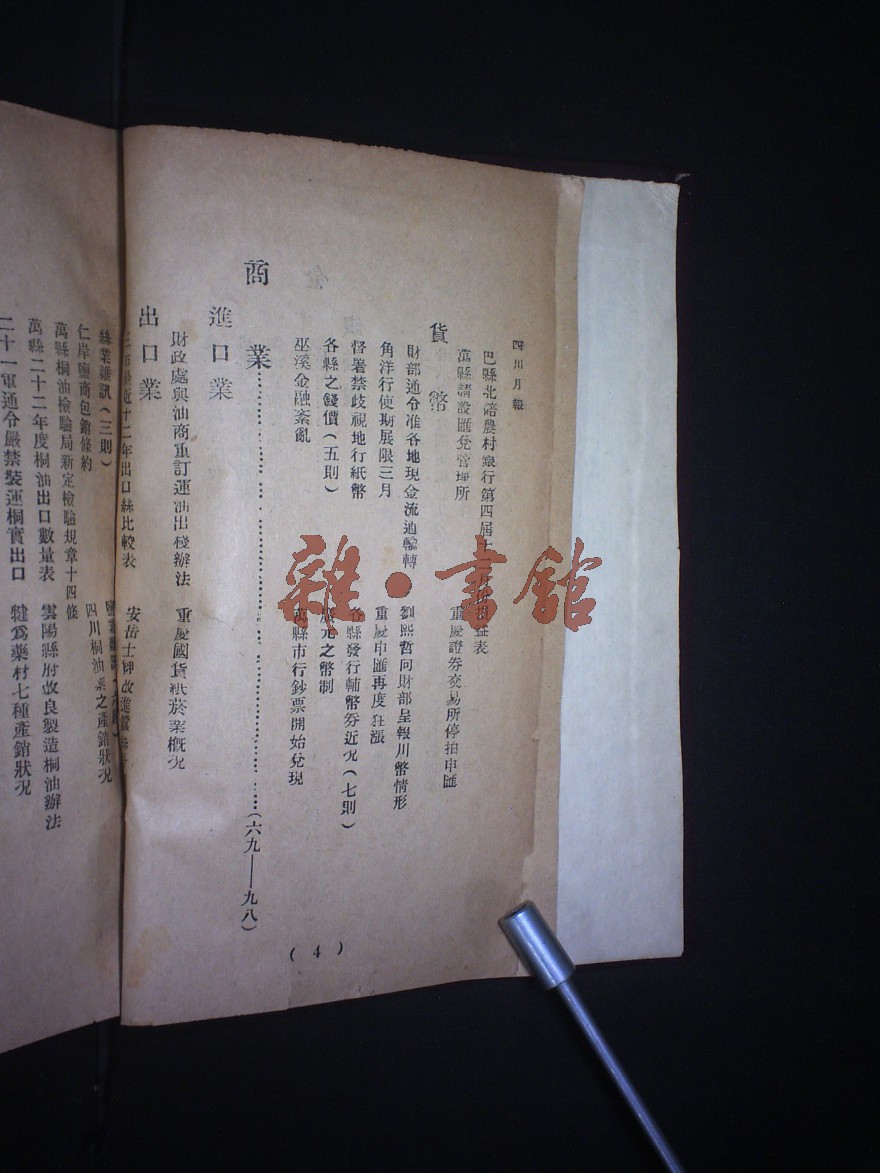 四川月報
巴縣北碚農村銀行第四屆
損益表
萬縣請設匯兌管理所
重慶證券交易所停拍申匯
貨幣
財部通令准各地現金流通輸轉
劉熙哲向財部呈報川幣情形
角洋行使期展限三月
重慶申匯再度狂漲
督署禁歧視地行紙幣
各縣發行輔幣券近況(七則)
各縣之錢價(五則)
廣元之幣制
巫溪金融紊亂
萬縣市行鈔票開始兌現
商業……(六九——九八)
進口業
財政處與油商重訂運油出棧辦法
重慶國貨紙菸業概況
出口業
近十二年出口絲比較表
安岳士紳改進
絲業雜訊(三則)
仁岸鹽商包銷條約
四川桐油業之產銷狀況
萬縣桐油檢驗局新定檢驗規章十四條
萬縣二十二年度桐油出口數量表
雲陽縣府改良製造桐油辦法
二十一軍通令嚴禁裝運桐實出口
犍爲藥材七種產銷狀況
(4)
雜·書館